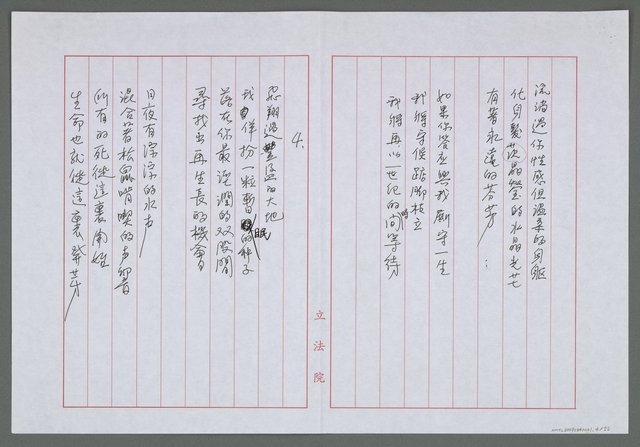 流淌過你性感但溫柔的身軀
化身為晶瑩的水晶光芒
有著永遠的芬芳
如果你答應與我廝守一生
我將守候踮腳枝立
我將再以一世紀的時間等待
4.
飛翔過豐盈的大地
我佯扮一粒暫眠的種子
落在你最溼潤的双股間
尋找出再生長的機會
日夜有淙淙的水声
混合著松鼠啃喫的声響
所有的死從這裏開始
生命也就從這裏發芽
立法院